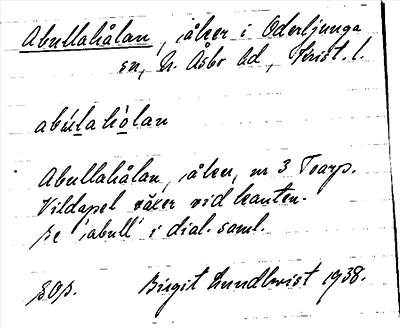 Abullahålan, åker i Oderljunga
sn, N. Åsbo hd, Krist. l.
abúlahòlan
Abullahålan, åker, nr 3 Toarp.
Vildapel växer vid kanten.
se 'abull' i dial. saml.
Birgit Lundkvist 1938.